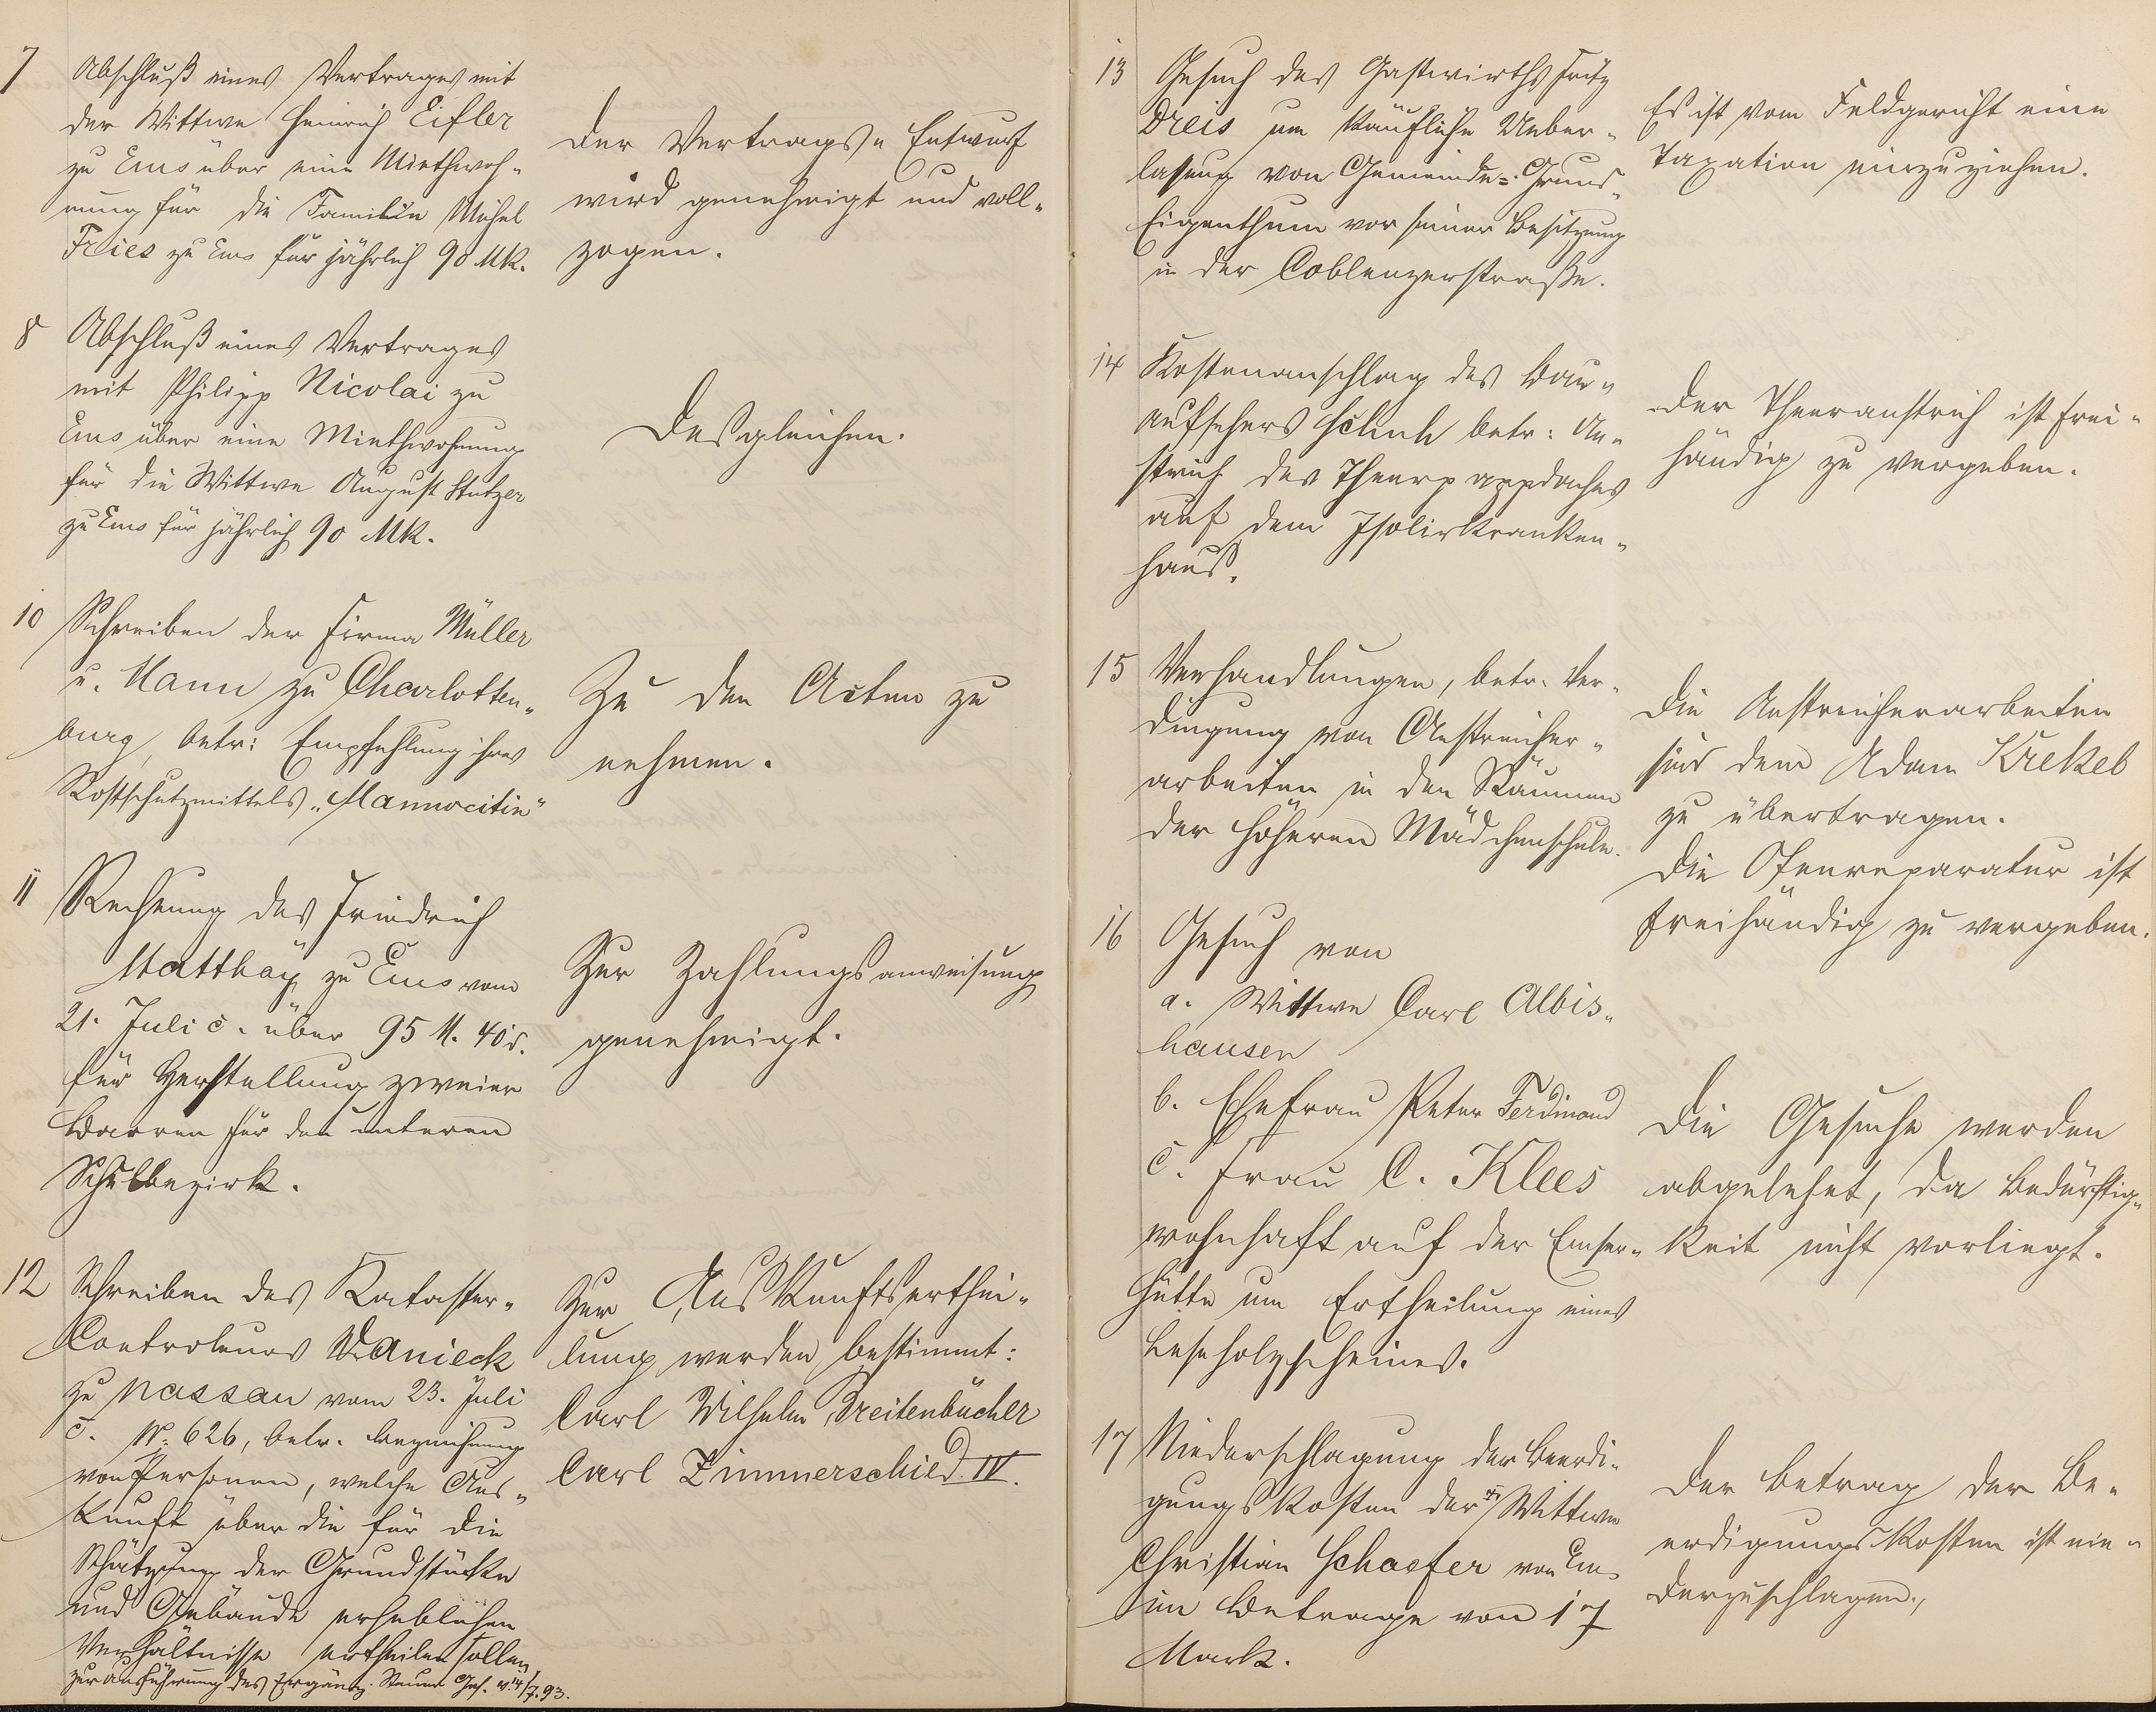 7
Abschluß eines Vertrages mit
der Wittwe Heinrich Eifler
zu Ems über eine Miethwoh-
nung für die Familie Michel
Fries zu Ems für jährlich 90 Mk.
Der Vertrags-Entwurf
wird genehmigt und voll-
zogen.
8
Abschluß eines Vertrages
mit Philipp Nicolai zu
Ems über eine Miethwohnung
für die Wittwe August Stutzer
zu Ems für jährlich 90 Mk.
Desgleichen.
10
Schreiben der Firma Müller
u. Mann zu Charlotten-
burg, betr: Empfehlung ihres
Rostschutzmittels "Mannocitin"
Zu den Acten zu
nehmen.
11
Rechnung des Friedrich
Matthäy zu Ems vom
21. Juli c. über 95 M. 40 d.
für Herstellung zweier
Barren für den unteren
Schulbezirk.
Zur Zahlungsanweisung
genehmigt.
12
Schreiben des Kataster-
Controleurs Wanieck
zu Nassau vom 23. Juli
c. No. 626, betr. Bezeichnung
von Personen, welche Aus-
kunft über die für die
Schätzung der Grundstücke
und Gebäude erheblichen
Verhältnisse ertheilen sollen
zur Ausführung des Ergänz. Steuer Ges. v. 14/7.93.
Zur Auskunftserthei-
lung werden bestimmt:
Carl Wilhelm Breitenbücher
Carl Zimmerschied IV.
13
Gesuch des Gastwirths Fritz
Dreis um käufliche Ueber-
lassung von Gemeinde-Grund-
Eigenthum vor seiner Besitzung
in der Coblenzerstraße.
Es ist vom Feldgericht eine
Taxation einzuziehen.
14
Kostenanschlag des Bau-
aufsehers Schenk betr: An-
strich des Theerpappdaches
auf dem Isolirkranken-
haus.
Der Theeranstrich ist frei-
händig zu vergeben.
15
Verhandlungen, betr. Ver-
dingung von Anstreicher-
arbeiten in den Räumen
der höheren Mädchenschule.
Die Anstreicherarbeiten
sind dem Adam Krekel
zu übertragen.
Die Ofenreparatur ist
freihändig zu vergeben.
16
Gesuch von
a. Wittwe Carl Albis-
hausen
b. Ehefrau Peter Ferdinand
c. Frau C. Klees
wohnhaft auf der Emser-
Hütte um Ertheilung eines
Leseholzscheines.
Die Gesuche werden
abgelehnt, da Bedürftig-
keit nicht vorliegt.
17
Niederschlagung der Beerdi-
gungskosten der Wittwe
Christian Schaefer von Ems
im Betrage von 17
Mark.
Der Betrag der Be-
erdigungskosten ist nie-
derzuschlagen.